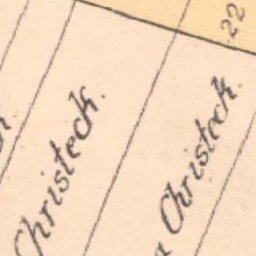 22
Christeck.
Christeck.